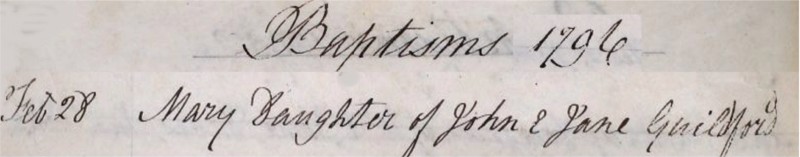 Baptisms 1796
Feb 28 Mary Daughter of John & Jane Guildford